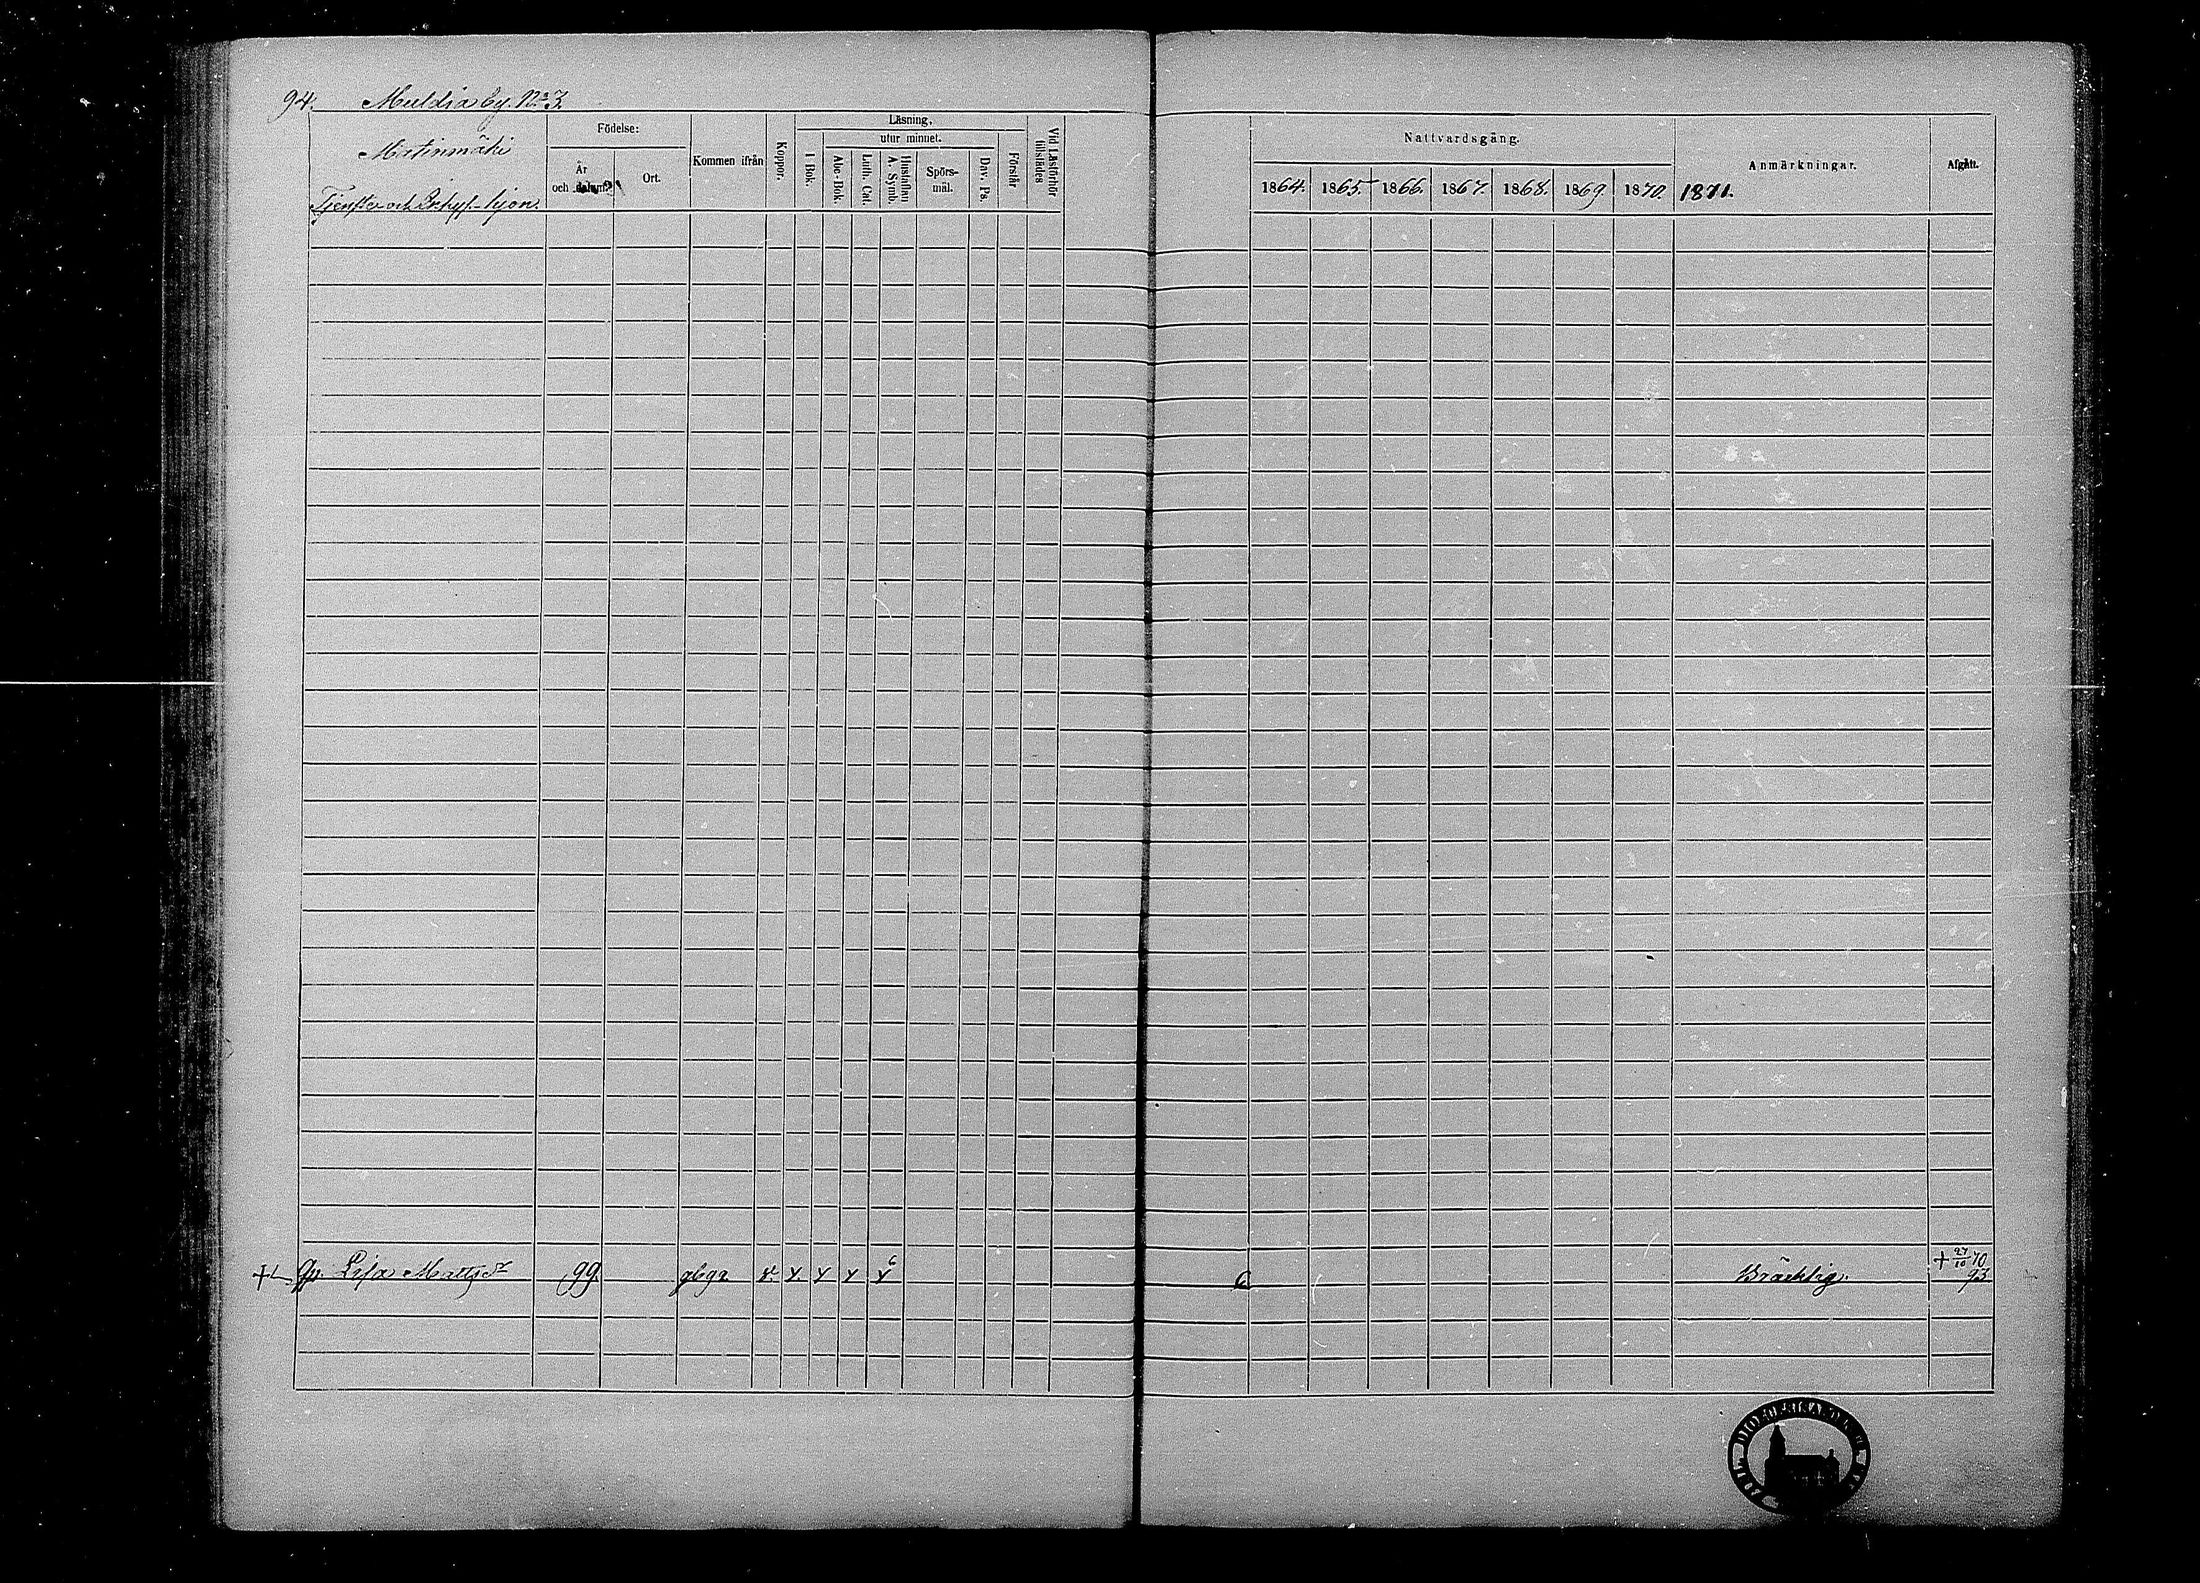 94. Muldia by. No 3.
Matinmäki
Tjenste- och Inhys.-hjon.
Födelse:
År och datum
Ort.
Kommen ifrån
Koppor.
Läsning,
I Bok.
utur minnet.
Abc-Bok.
Luth. Cat.
Hustaflan A. Symb.
Spörs-mål.
Dav. Ps.
Förstår
Vid Läsförhör tillstädes
Nattvardsgång.
1864. 1865. 1866. 1867. 1868. 1869. 1870. 1871.
Anmärkningar.
Afgått.
Lisa Mattsdr 99. v. x. x x x c Bräcklig. + 27/10 70
93